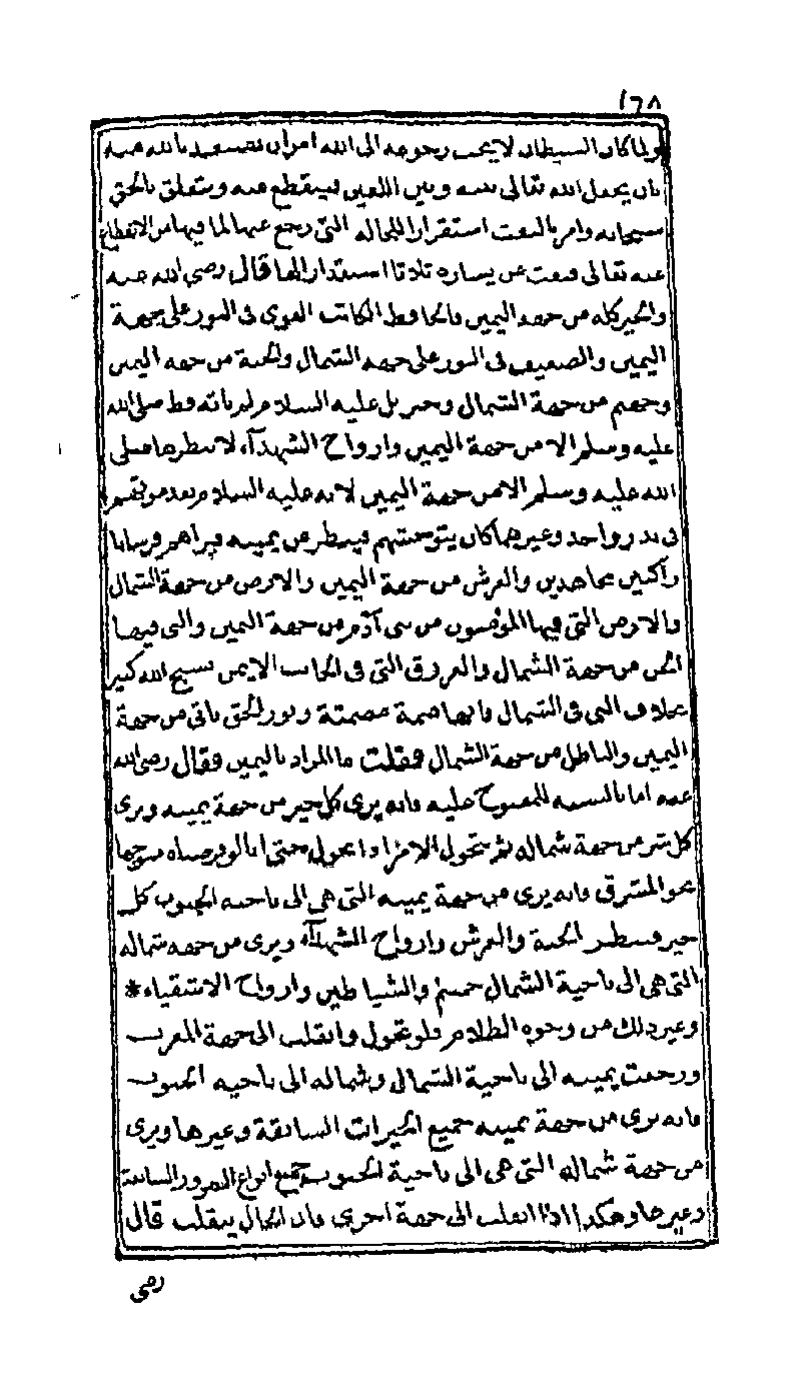 ١٦٨
ولما كان الشيطان لا يحب رجوعه الى الله امر ان يستعيذ بالله منه
بان يجعل الله تعالى بينه وبين اللعين فينقطع عنه ويتعلق بالحق
سبحانه وامر بالنفث استقذارا للحالة التي رجع عنها لما فيها من الانقطاع
عنه تعالى فينفث عن يساره ثلاثا استقذارا لها قال رضي الله عنه
والخير كله من جهة اليمين فالحافظ الكاتب القوي في النور على جهة
اليمين والضعيف في النور على جهة الشمال والجنة من جهة اليمين
وجهنم من جهة الشمال وجبريل عليه السلام لم ياته قط صلى الله
عليه وسلم الا من جهة اليمين وارواح الشهداء لا ينظرها صلى
الله عليه وسلم الا من جهة اليمين لانه عليه السلام بعد موتهم
في بدر واحد وغيرهما كان يتوحشهم فينظر عن يمينه فيراهم فرسانا
راكبين مجاهدين والعرش من جهة اليمين والارض من جهة الشمال
والارض التي فيها المؤمنون من بني آدم من جهة اليمين والتي فيها
الجن من جهة الشمال والعروق التي في الجانب الايمن تسبح الله كثير
بخلاف التي في الشمال فانها صمة مصمتة ونور الحق ياتي من جهة
اليمين والباطل من جهة الشمال فقلت ما المراد باليمين فقال رضي الله
عنه اما بالنسبة للمفتوح عليه فانه يرى كل خير من جهة يمينه ويرى
كل شر من جهة شماله ثم يتحول الامر اذا تحول حتى انا لو فرضناه متوجها
نحو المشرق فانه يرى من جهة يمينه التي هي الى ناحية الجنوب كل
خير فينظر الجنة والعرش وارواح الشهداء ويرى من جهة شماله
التي هي الى ناحية الشمال جهنم والشياطين وارواح الاشقياء *
وغير ذلك من وجوه الظلام فلو تحول وانقلب الى جهة المغرب
ورجعت يمينه الى ناحية الشمال وشماله الى ناحية الجنوب
فانه يرى من جهة يمينه جميع الخيرات السابقة وغيرها ويرى
من جهة شماله التي هي الى ناحية الجنوب جميع انواع الشرور السابقة
وغيرها وهكذا اذا انقلب الى جهة اخرى فان الحال ينقلب قال
رضي